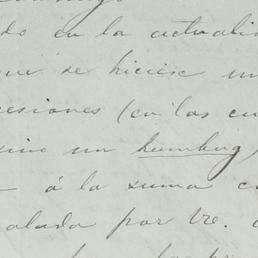 do en la actuali
que se hiciese un
cesiones (en las cu
sino un humbug,
á la suma c
alada por Ve.